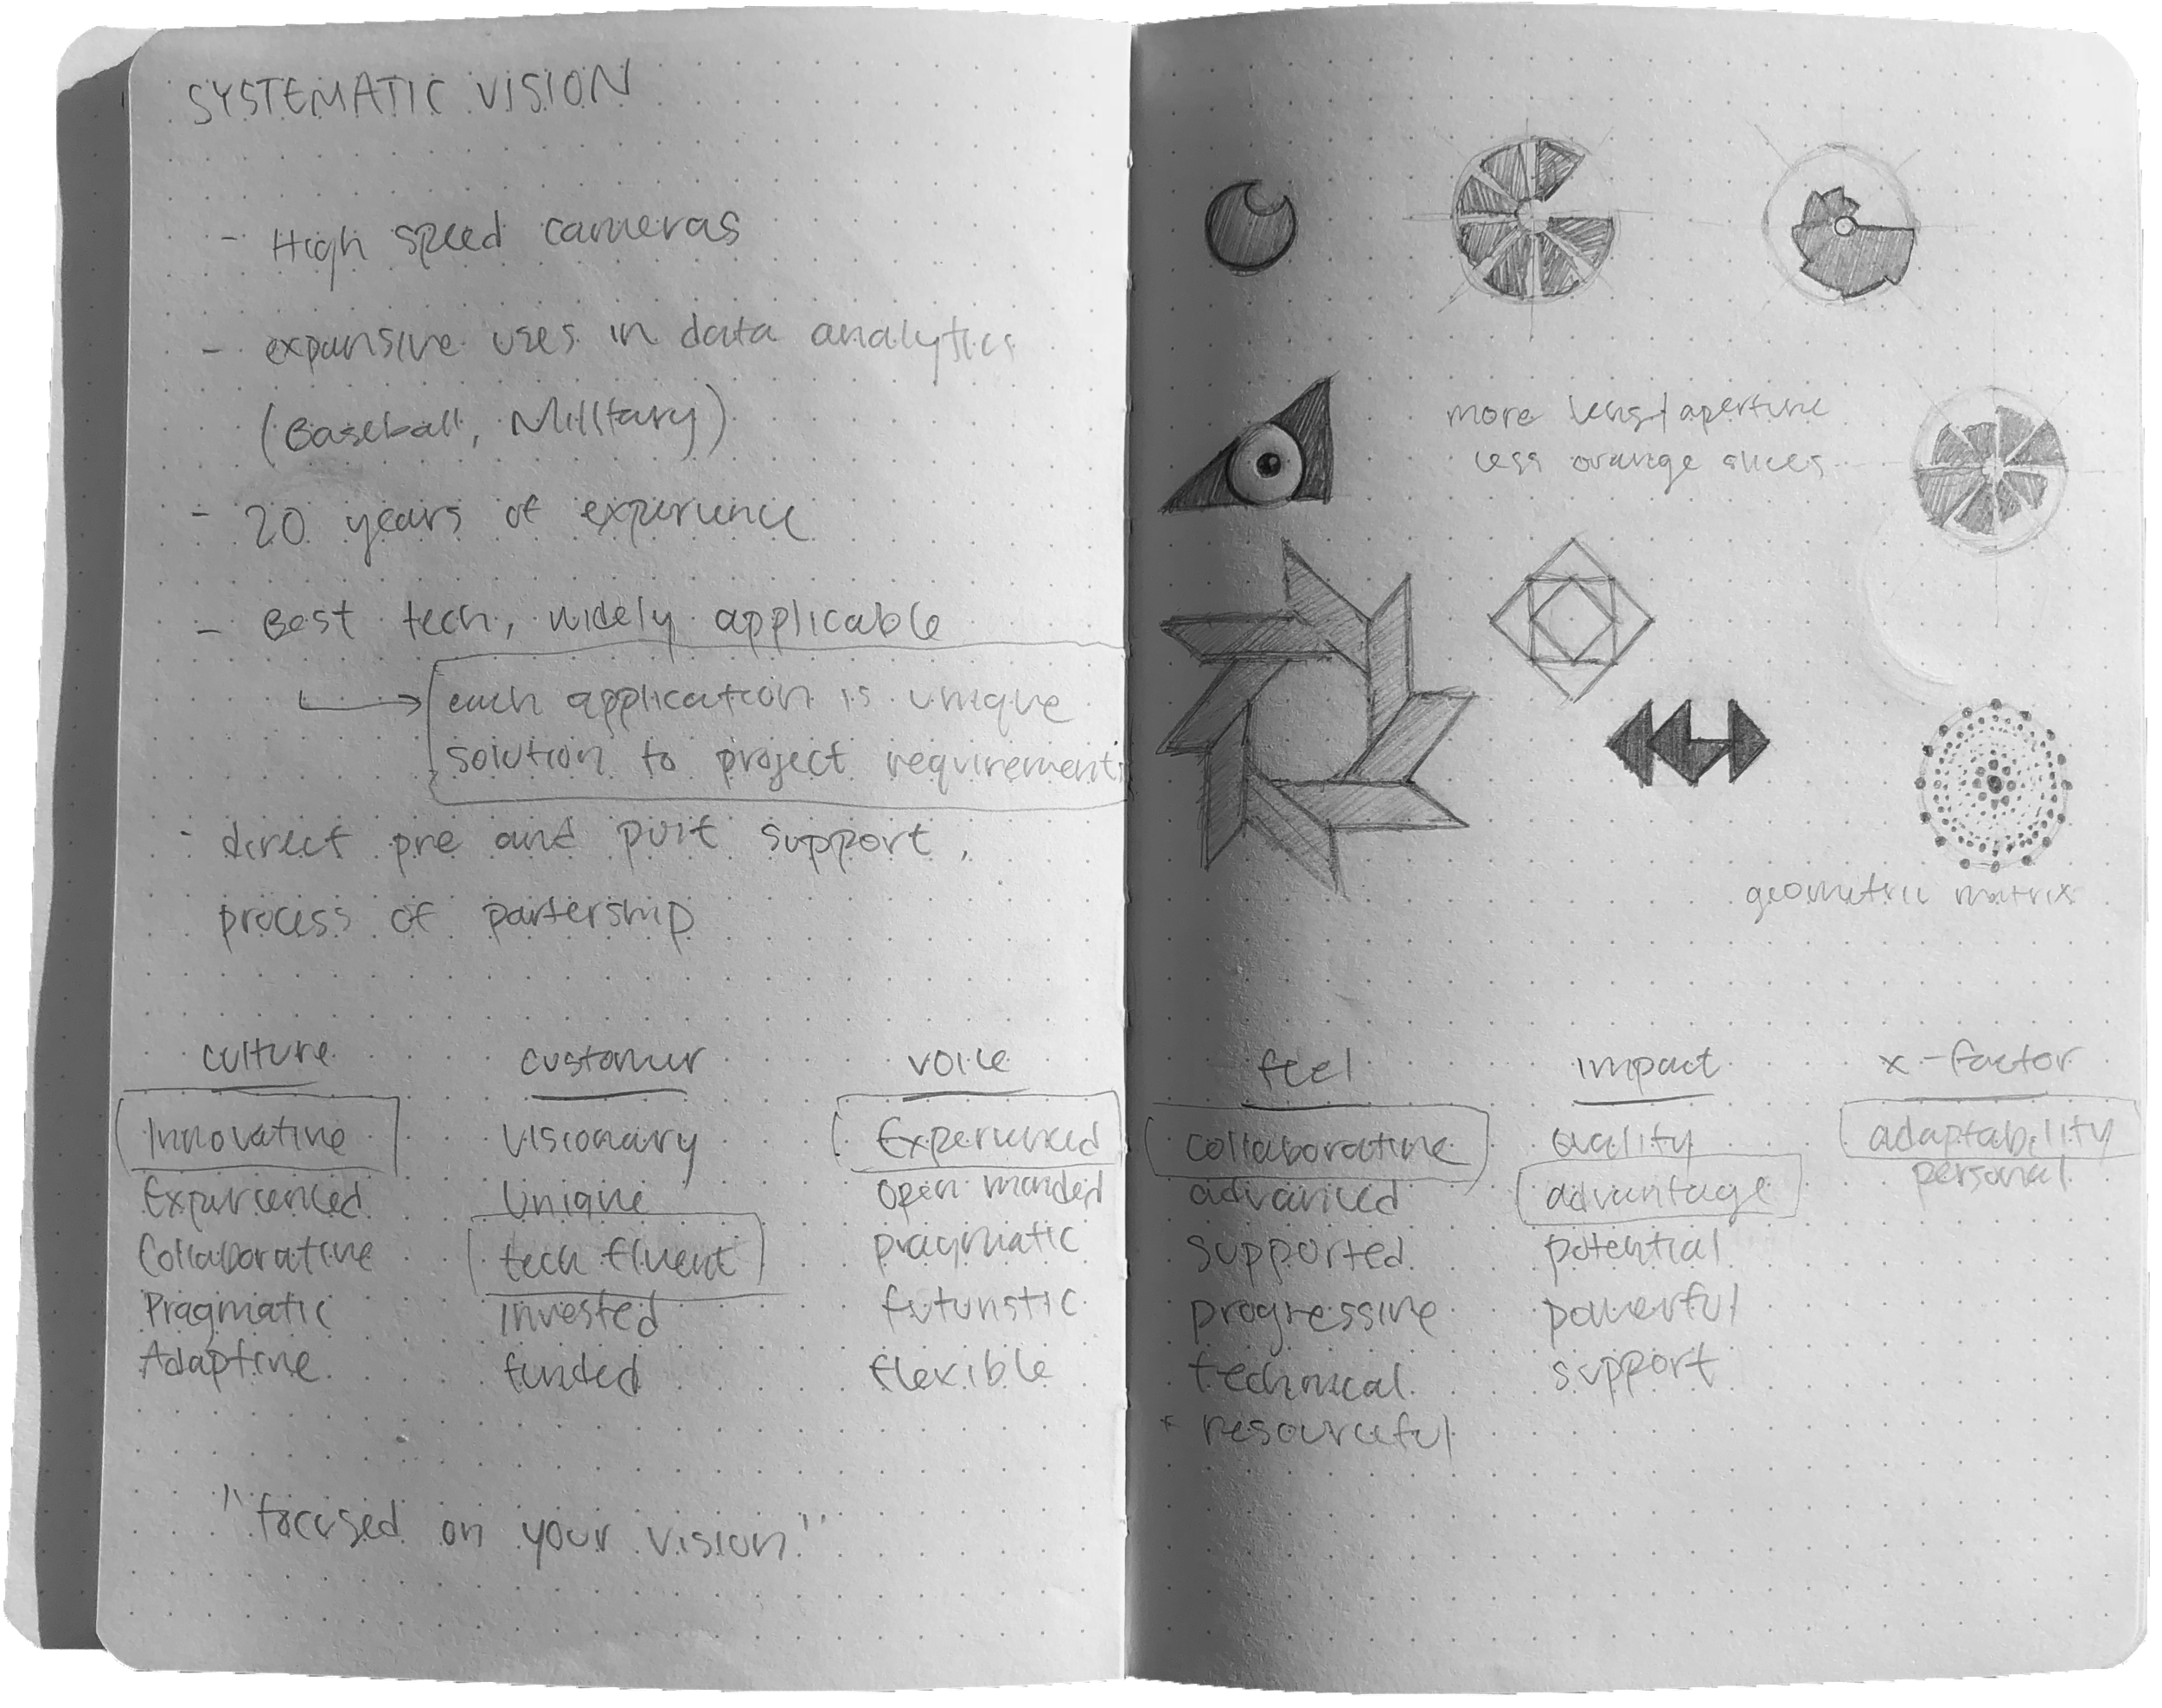 SYSTEMATIC VISION
- High speed cameras
- expansive uses in data analytics
(Baseball, Military)
- 20 years of experience
- Best tech, widely applicable
each application is unique
solution to project requirements
- direct pre and post support,
process of partership
culture
Innovative
Experienced
Collaborative
Pragmatic
Adaptive
customer
visionary
unique
tech fluent
invested
funded
voice
Experienced
open minded
pragmatic
futuristic
flexible
"focused on your vision"
more lens/aperture
less orange slices
geometric matrix
feel
collaborative
advanced
supported
progressive
technical
resourceful
impact
quality
advantage
potential
powerful
support
x-factor
adaptability
personal